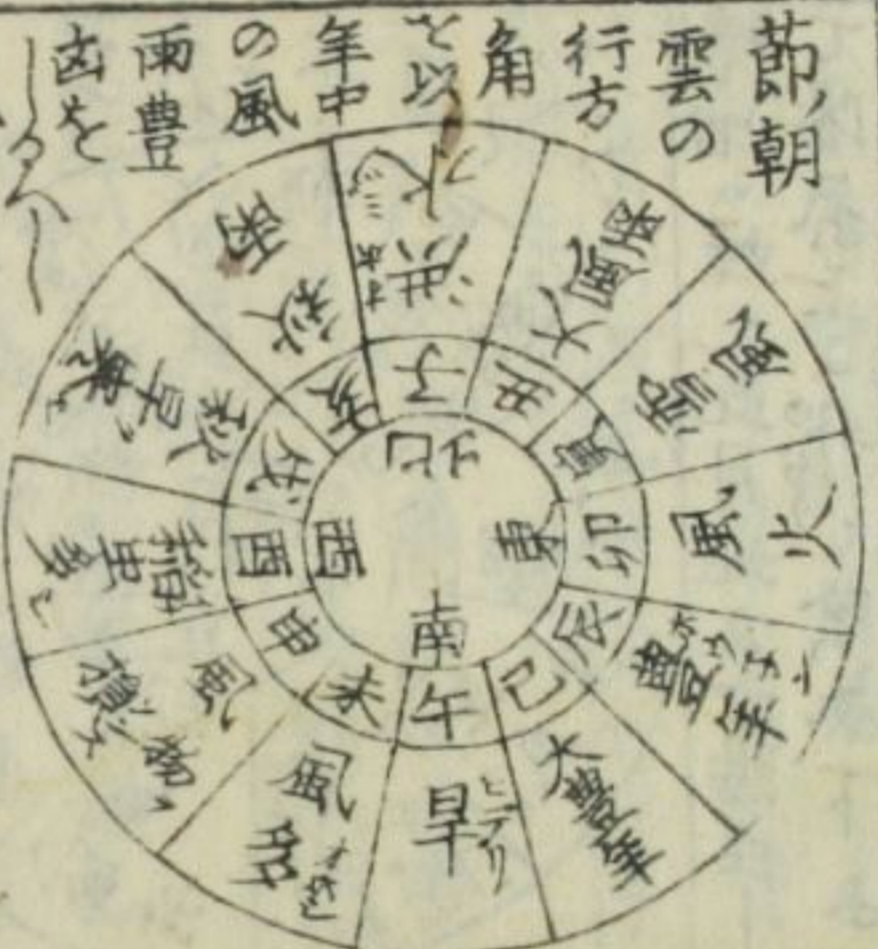 節朝
雲の
行方
角
を以
年中
の風
雨豊
凶を
しるべし
北
東
南
西
子
丑
寅
卯
辰
巳
午
未
申
酉
戌
亥
洪水
大風雨
風雪
火風
豊年
ホウネン
大豊年
旱
ヒデリ
風多
風
損
稲虫多し
秋旱
秋雨